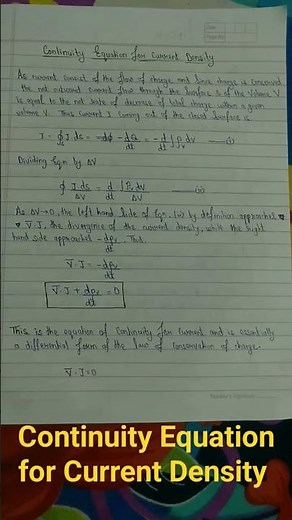 Date
Continuity Equation for Current Density
As current consist of the flow of charge and since charge is conserved
the net outward current flow through the surface S of the volume V
is equal to the net rate of decrease of total charge within a given
volume V. Thus Current I coming out of the closed surface is
I = ∮ J. ds = -dQ/dt = -d/dt ∫ρv dV —(i)
Dividing Eqn by ΔV
∮ J. ds/ΔV = d/dt ∫ρv dV/ΔV —(ii)
As ΔV→0, the left hand side of Eqn. (ii) by definition approaches
∇.J, the divergence of the current density, while the right
hand side approaches -dρv/dt. Thus
∇.J = -dρv/dt
∇.J + dρv/dt = 0
This is the equation of continuity for current and is essentially
a differential form of the law of conservation of charge.
∇.J = 0
Continuity Equation
for Current Density